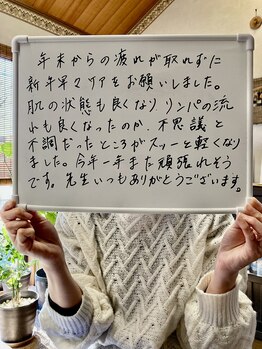 年末からの疲れが取れずに
新年早々ケアをお願いしました。
肌の状態も良くなりリンパの流
れも良くなったのか、不思議と
不調だったところがスッーと軽くなり
ました。今年一年また頑張れそう
です。先生いつもありがとうございます。